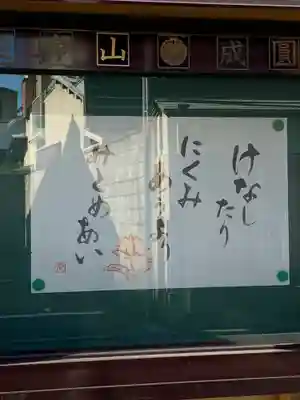 山 成圓
けなし
たり
にくみ
あうより
みとめあい